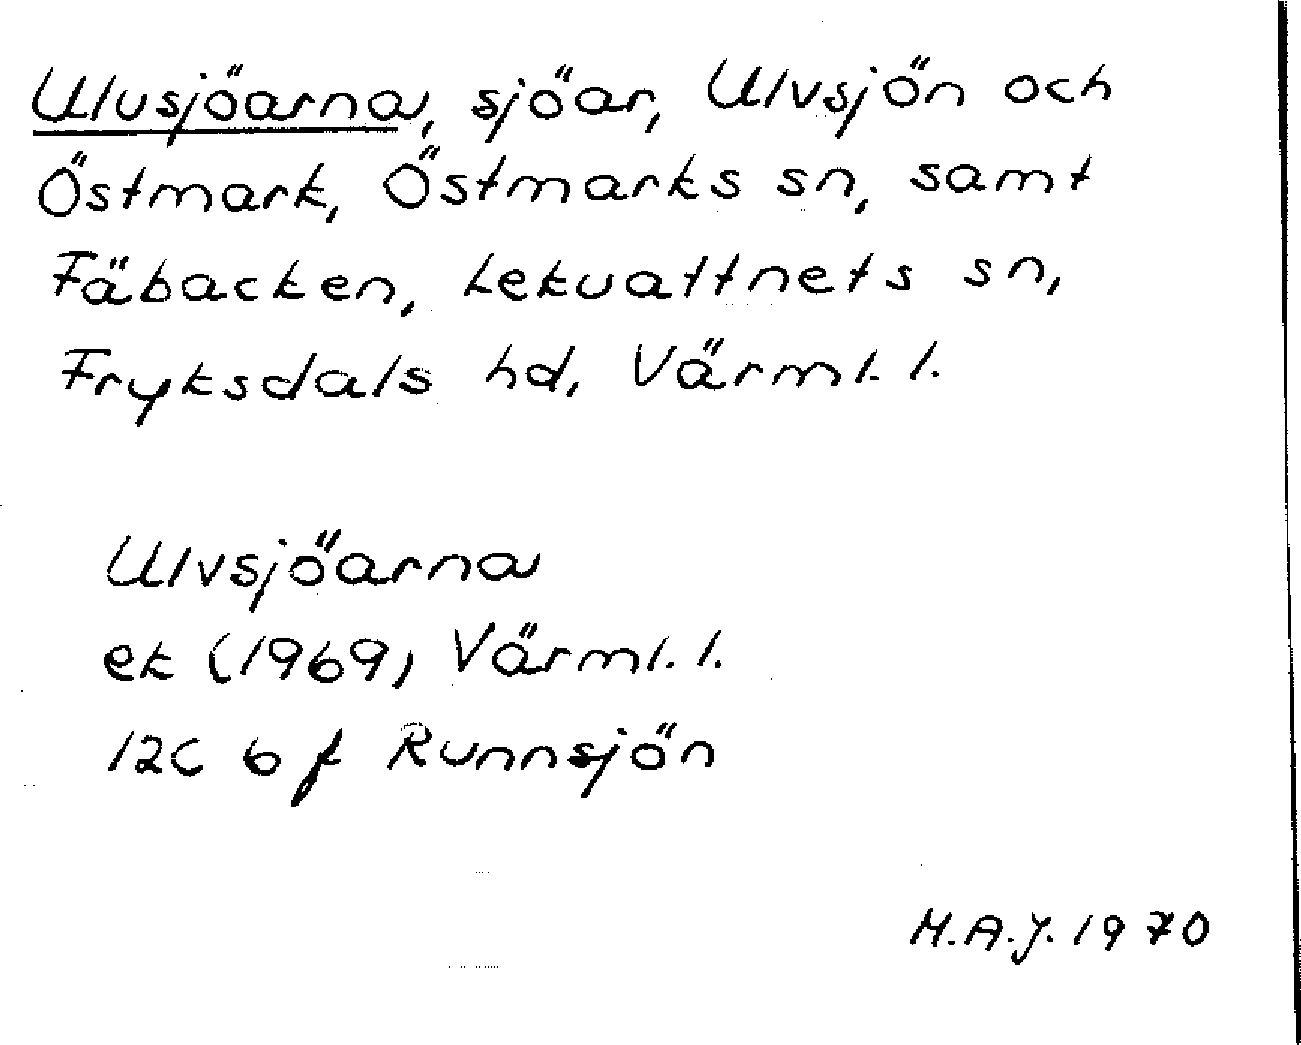 Ulvsjöarna, sjöar, Ulvsjön och
Östmark, Östmarks sn, samt
Fäbacken, Lekvattnets sn,
Fryksdals hd, Värml. l.
Ulvsjöarna
ek (1969) Värml. l.
12C 6 f Runnsjön
M.A.J. 1970